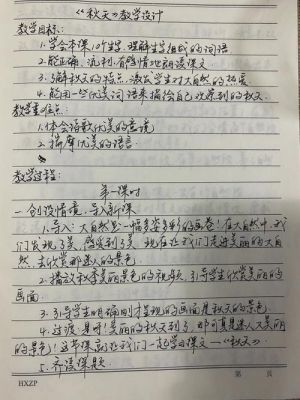 《秋天》教学设计
教学目标:
1.学会本课10个生字,理解生字组成的词语
2.能正确、流利、有感情地朗读课文。
3.了解秋天的特点,激发学生对大自然的热爱
4.能用一些优美词语来描绘自己观察到的秋天。
教学重难点:
1.体会诗歌优美的意境
2.揣摩优美的语言
教学过程:
第一课时
一、创设情境,导入新课
1.导入:大自然是一幅多姿多彩的画卷!在大自然中,我
们发现了美,感受到了美,现在让我们走进美丽的大自
然,去欣赏那迷人的景色。
2.播放秋季美丽景色的视频,引导学生欣赏美丽的
画面
3.引导学生明确刚才呈现的画面是秋天的景色
4.过渡:是呀!美丽的秋天到了,那可真是迷人又美丽
的景色!这节课就让我们一起学习课文—《秋天》。
5.齐读课题
HXZP
第 页